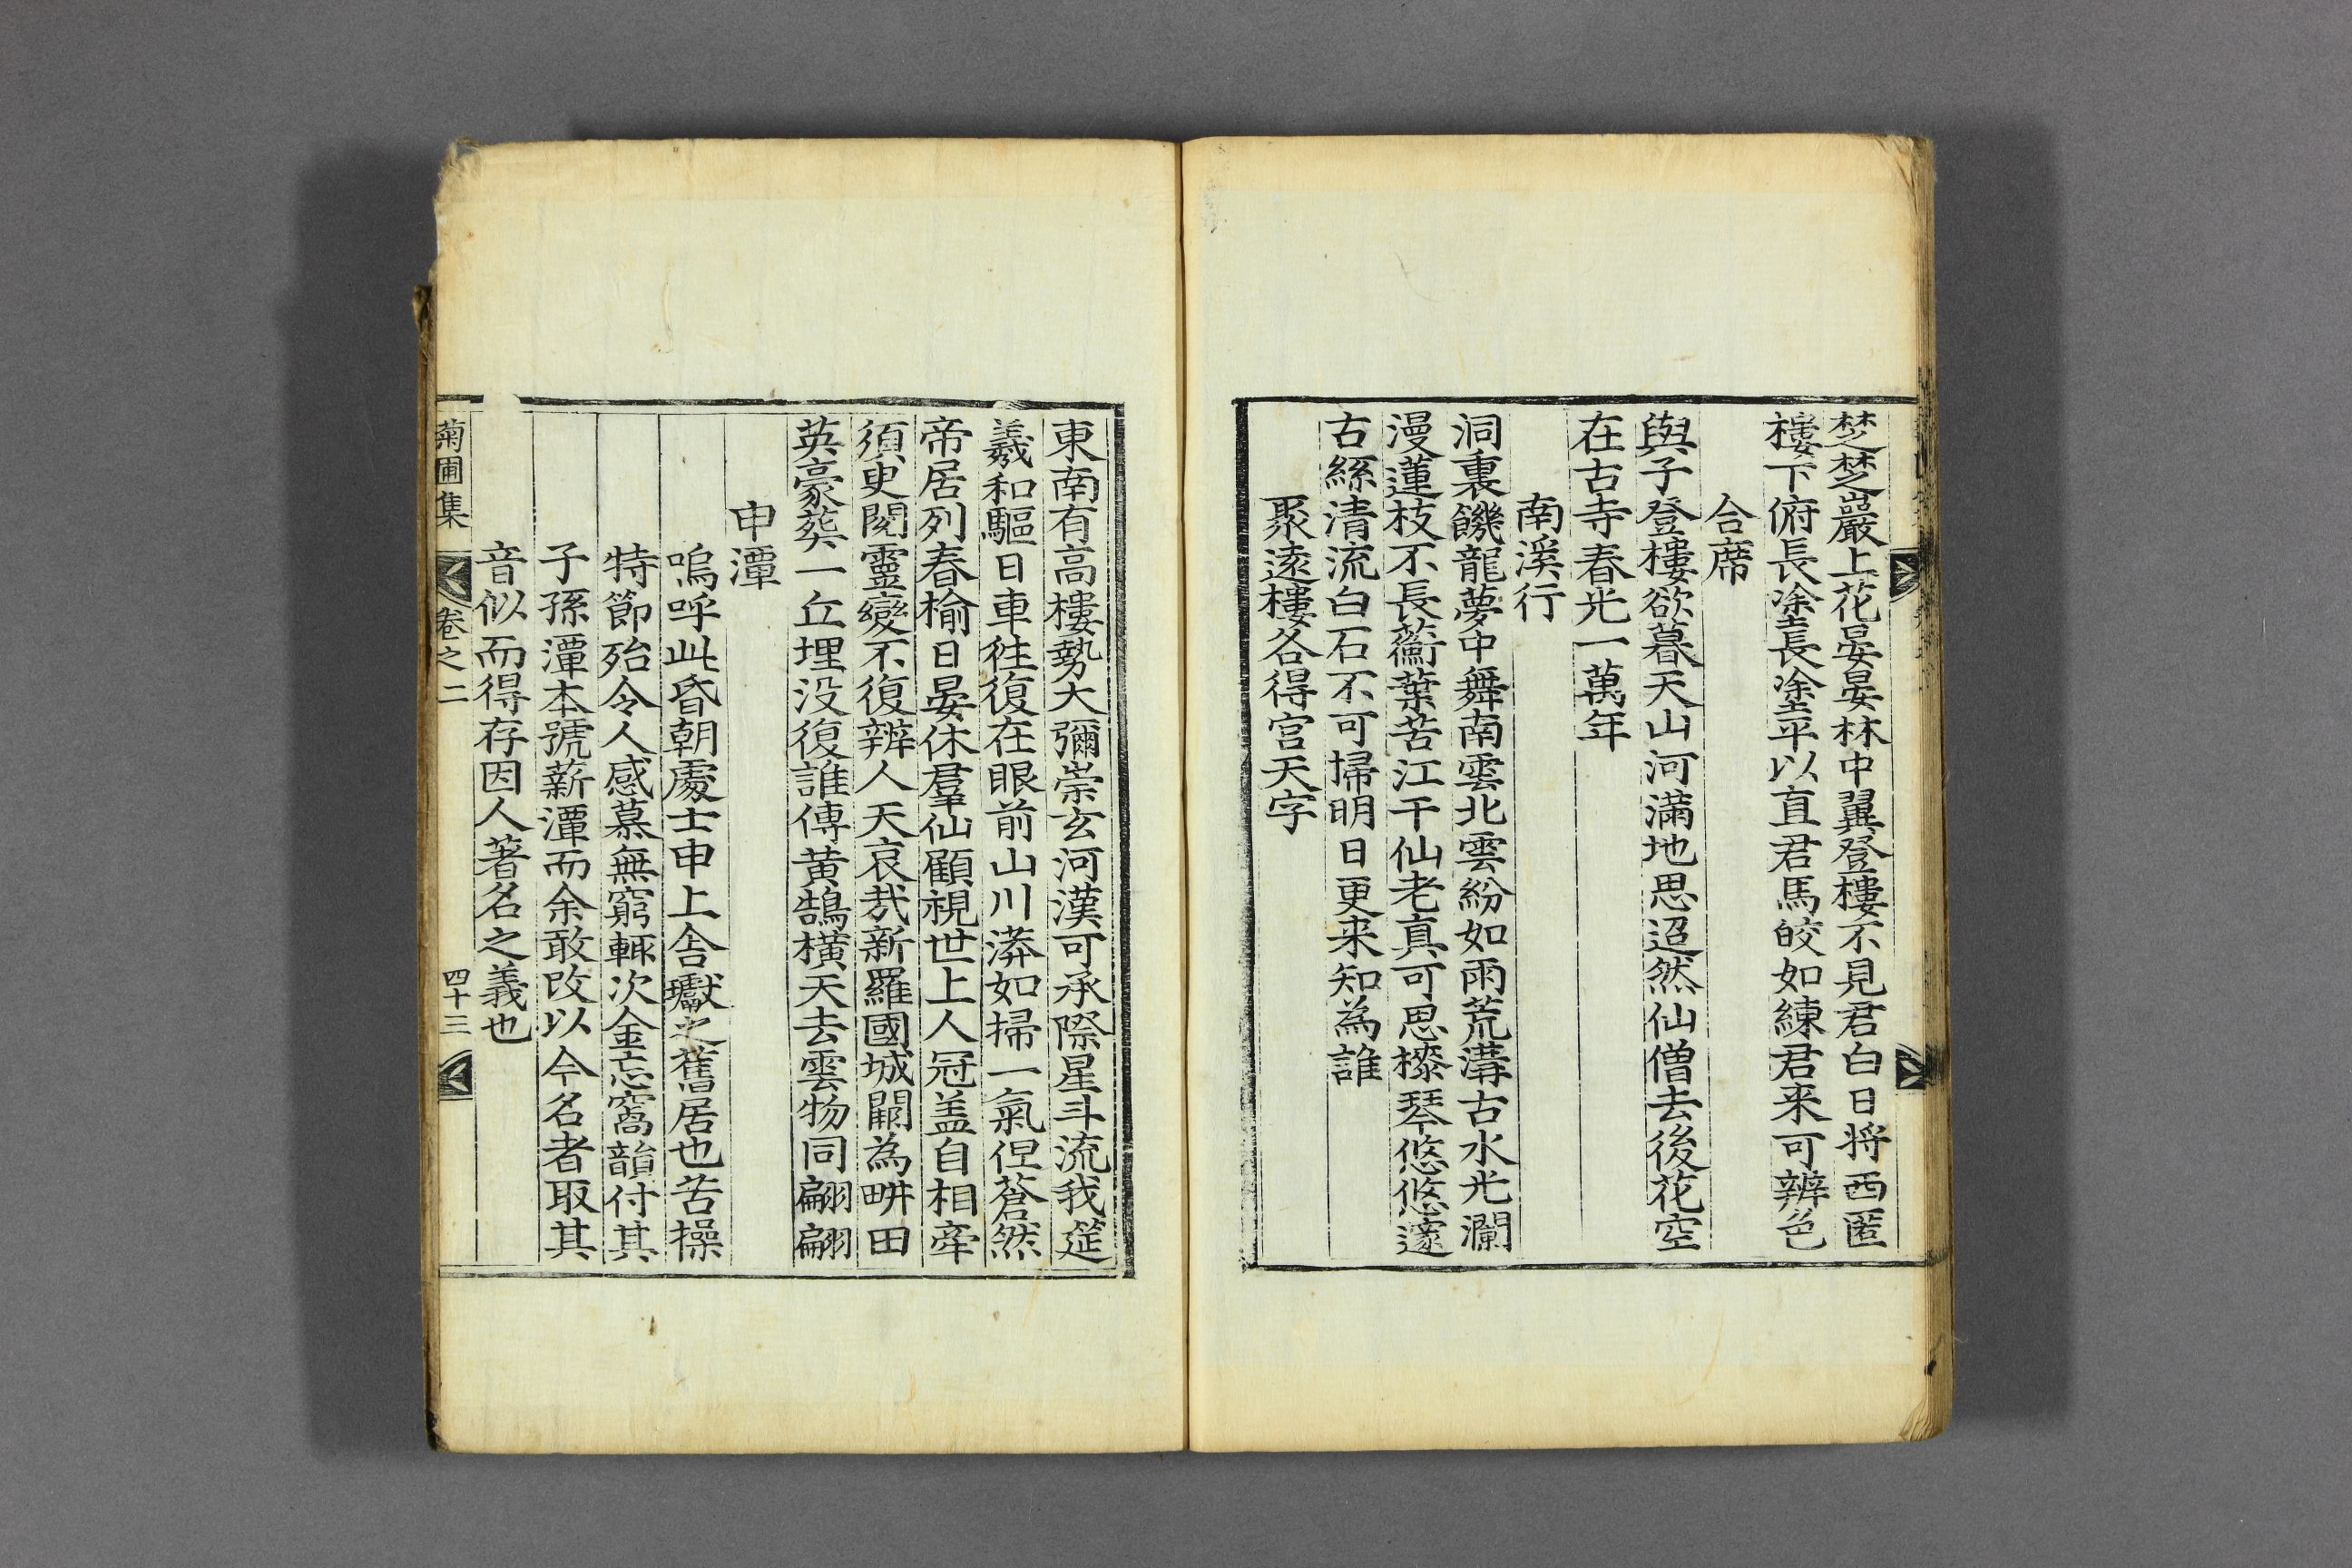 楚楚巖上花晏晏林中翼登樓不見君白日將西匿
樓下俯長塗長塗平以直君馬皎如練君来可辨色
合席
與子登樓欲暮天山河滿地思迢然仙僧去後花空
在古寺春光一萬年
南溪行
洞裏饑龍夢中舞南雲北雲紛如雨荒溝古水光瀾
漫蓮枝不長蘅葉苦江干仙老真可思檫琴悠悠邃
古絲清流白石不可掃明日更来知為誰
聚遠樓各得宮天字
東南有高樓勢大彌崇玄河漢可承際星斗流我筵
羲和驅日車往復在眼前山川漭如掃一氣俓蒼然
帝居列春榆日晏休羣仙顧視世上人冠盖自相牽
須臾閱靈變不復辨人天哀哉新羅國城闕為畊田
英豪葬一丘埋没復誰傳黄鵠橫天去雲物同翩翩
申潭
嗚呼此昏朝處士申上舍𤫉之舊居也苦操
特節殆令人感慕無窮輒次金忘窩韻付其
子孫潭本號薪潭而余敢改以今名者取其
音似而得存因人著名之義也
菊圃集 卷之二 四十三